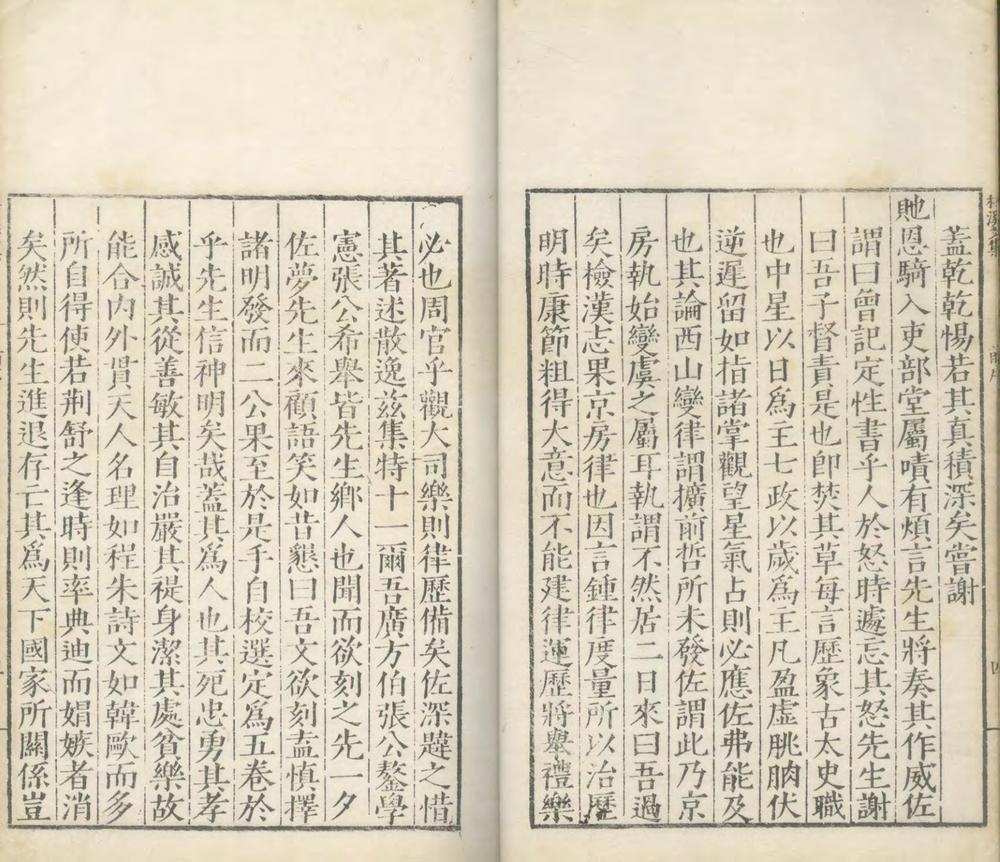 蓋乾乾惕若其真積深矣嘗謝
貤恩騎入吏部堂屬嘖有煩言先生將奏其作威佐
謂曰曾記定性書乎人於怒時遽忘其怒先生謝
曰吾子督責是也卽焚其草每言歷象古太史職
也中星以日爲主七政以歲爲王凡盈虛朓朒伏
逆遲留如指諸掌觀望星氣占則必應佐弗能及
也其論西山變律謂擴前哲所未發佐謂此乃京
房執始變虞之屬耳執謂不然居二日來曰吾過
矣檢漢志果京房律也因言鍾律度量所以治歷
明時康節粗得大意而不能建律運歷將舉禮樂
必也周官乎觀大司樂則律歷備矣佐深韙之惜
其著述散逸茲集特十一爾吾廣方伯張公鏊學
憲張公希舉皆先生鄉人也聞而欲刻之先一夕
佐夢先生來顧語笑如昔懇曰吾文欲刻盍慎擇
諸明發而二公果至於是手自校選定爲五卷於
乎先生信神明矣哉蓋其爲人也其死忠勇其孝
感誠其從善敏其自治嚴其褆身潔其處貧樂故
能合內外貫天人名理如程朱詩文如韓歐而多
所自得使若荆舒之逢時則率典迪而娟嫉者消
矣然則先生進退存亡其爲天下國家所關係豈